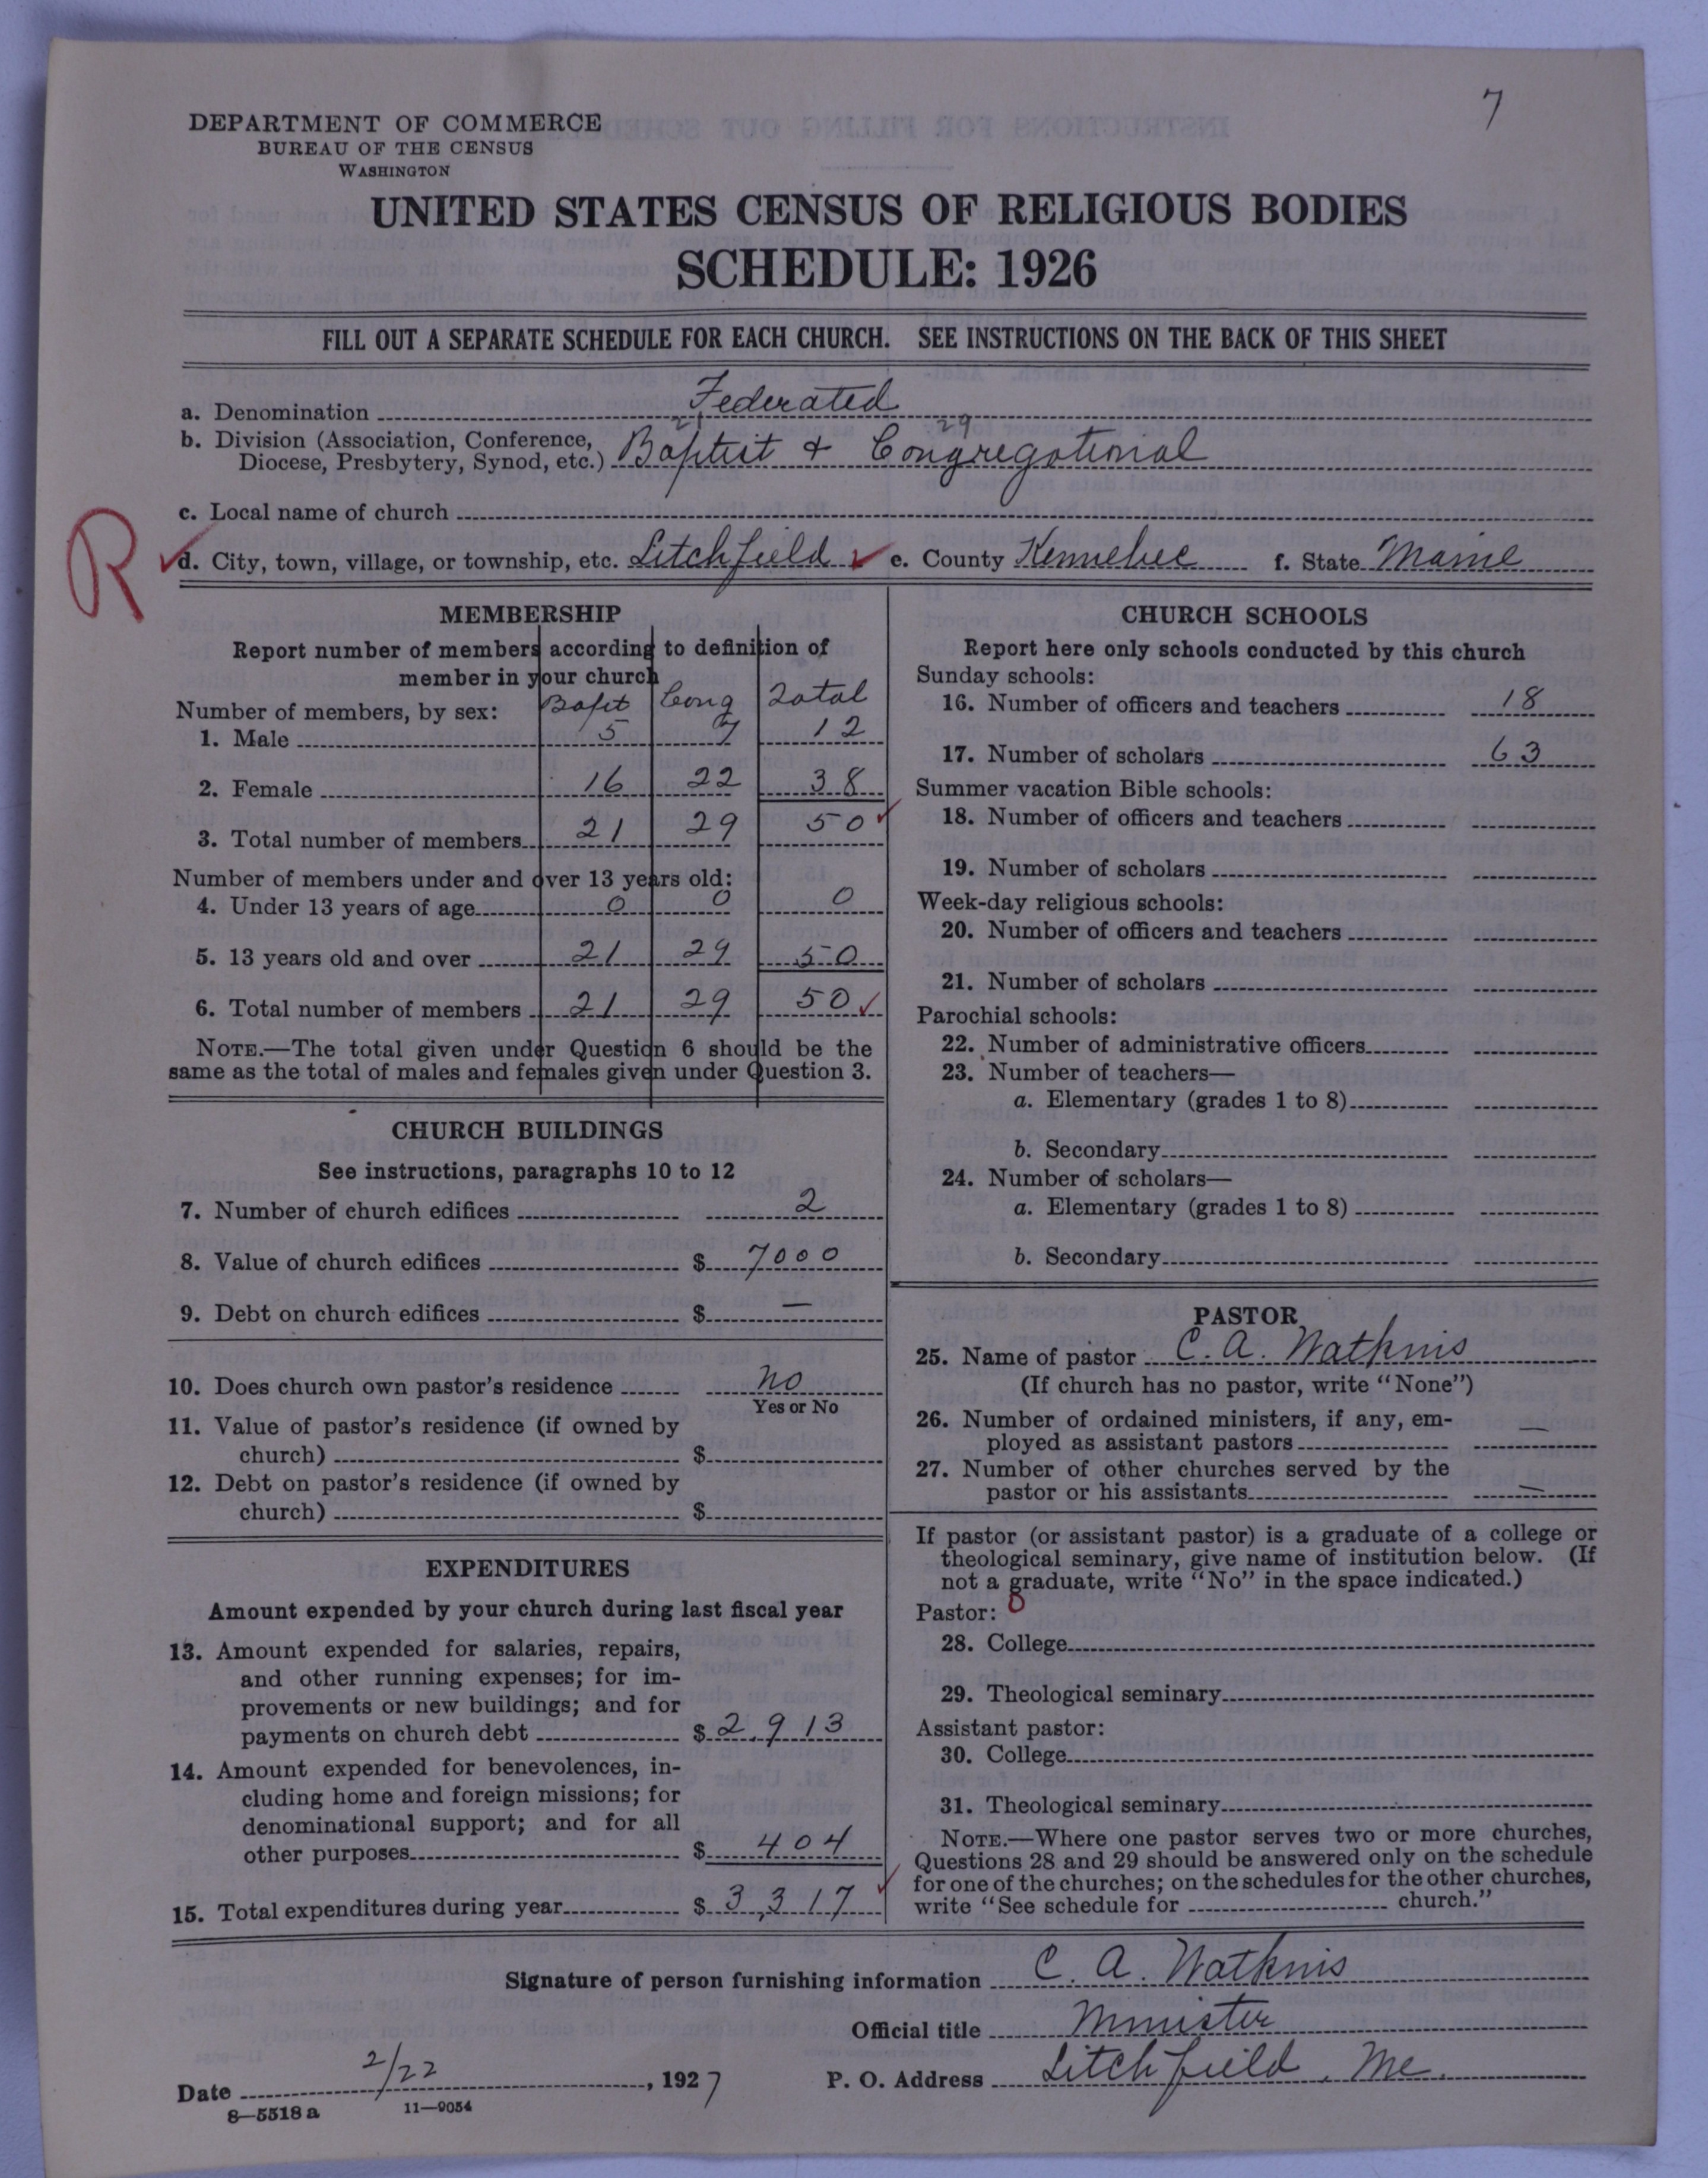 7
DEPARTMENT OF COMMERCE
BUREAU OF THE CENSUS
WASHINGTON
UNITED STATES CENSUS OF RELIGIOUS BODIES
SCHEDULE: 1926
FILL OUT A SEPARATE SCHEDULE FOR EACH CHURCH. SEE INSTRUCTIONS ON THE BACK OF THIS SHEET
a. Denomination Federated
21 29
b. Division (Association, Conference, Diocese, Presbytery, Synod, etc.) Baptist + Congregational
c. Local name of church
R
d. City, town, village, or township, etc. Litchfield e. County Kennebec f. State Maine
MEMBERSHIP
Report number of members according to definition of
member in your church
Number of members, by sex: Bapt Cong Total
1. Male 5 7 12
2. Female 16 22 38
3. Total number of members 21 29 50
Number of members under and over 13 years old:
4. Under 13 years of age 0 0 0
5. 13 years old and over 21 29 50
6. Total number of members 21 29 50
NOTE.—The total given under Question 6 should be the
same as the total of males and females given under Question 3.
CHURCH BUILDINGS
See instructions, paragraphs 10 to 12
7. Number of church edifices 2
8. Value of church edifices $ 7000
9. Debt on church edifices $ —
10. Does church own pastor's residence No
Yes or No
11. Value of pastor's residence (if owned by
church) $
12. Debt on pastor's residence (if owned by
church) $
EXPENDITURES
Amount expended by your church during last fiscal year
13. Amount expended for salaries, repairs,
and other running expenses; for im-
provements or new buildings; and for
payments on church debt $ 2,913
14. Amount expended for benevolences, in-
cluding home and foreign missions; for
denominational support; and for all
other purposes $ 404
15. Total expenditures during year $ 3,317
CHURCH SCHOOLS
Report here only schools conducted by this church
Sunday schools:
16. Number of officers and teachers 18
17. Number of scholars 63
Summer vacation Bible schools:
18. Number of officers and teachers
19. Number of scholars
Week-day religious schools:
20. Number of officers and teachers
21. Number of scholars
Parochial schools:
22. Number of administrative officers
23. Number of teachers—
a. Elementary (grades 1 to 8)
b. Secondary
24. Number of scholars—
a. Elementary (grades 1 to 8)
b. Secondary
PASTOR
25. Name of pastor C. A. Watkins
(If church has no pastor, write "None")
26. Number of ordained ministers, if any, em-
ployed as assistant pastors —
27. Number of other churches served by the
pastor or his assistants —
If pastor (or assistant pastor) is a graduate of a college or
theological seminary, give name of institution below. (If
not a graduate, write "No" in the space indicated.)
Pastor: 0
28. College
29. Theological seminary
Assistant pastor:
30. College
31. Theological seminary
NOTE.—Where one pastor serves two or more churches,
Questions 28 and 29 should be answered only on the schedule
for one of the churches; on the schedules for the other churches,
write "See schedule for church."
Signature of person furnishing information C. A. Watkins
Official title Minister
Date 2/22, 1927 P. O. Address Litchfield, Me.
8—5518 a 11—9054